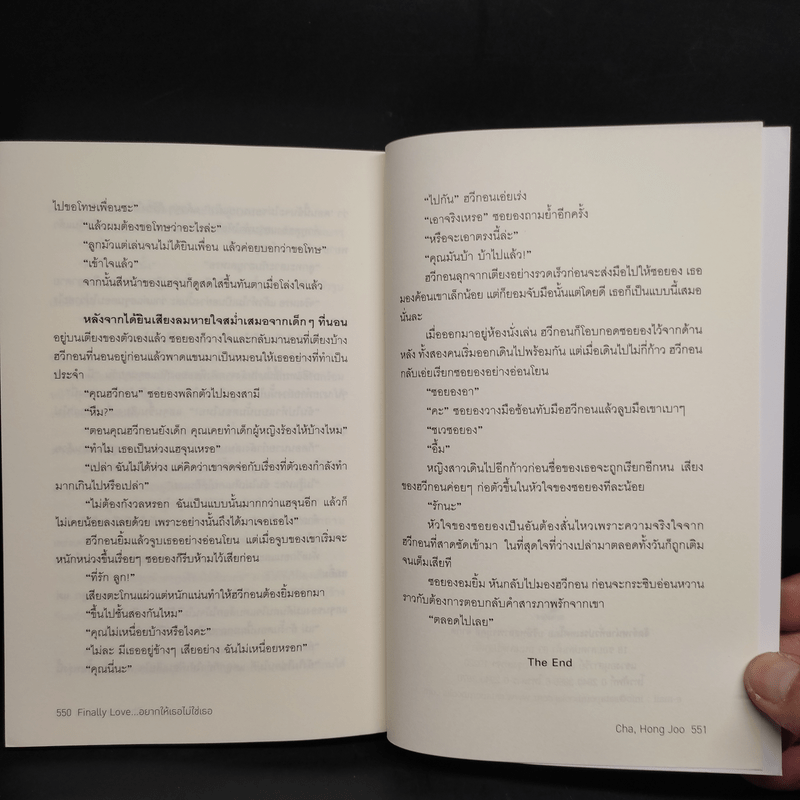 ไปขอโทษเพื่อนซะ”
“แล้วผมต้องขอโทษว่าอะไรล่ะ”
“ลูกมัวแต่เล่นจนไม่ได้ยินเพื่อน แล้วค่อยบอกว่าขอโทษ”
“เข้าใจแล้ว”
จากนั้นสีหน้าของแฮจุนก็ดูสดใสขึ้นทันตาเมื่อโล่งใจแล้ว
หลังจากได้ยินเสียงลมหายใจสม่ำเสมอจากเด็กๆ ที่นอน
อยู่บนเตียงของตัวเองแล้ว ซอยองก็วางใจและกลับมานอนที่เตียงบ้าง
ฮวีกอนที่นอนอยู่ก่อนแล้วพาดแขนมาเป็นหมอนให้เธออย่างที่ทำเป็น
ประจำ
“คุณฮวีกอน” ซอยองพลิกตัวไปมองสามี
“หืม?”
“ตอนคุณฮวีกอนยังเด็ก คุณเคยทำเด็กผู้หญิงร้องไห้บ้างไหม”
“ทำไม เธอเป็นห่วงแฮจุนเหรอ”
“เปล่า ฉันไม่ได้ห่วง แค่คิดว่าเขาจดจ่อกับเรื่องที่ตัวเองกำลังทำ
มากเกินไปหรือเปล่า”
“ไม่ต้องกังวลหรอก ฉันเป็นแบบนั้นมากกว่าแฮจุนอีก แล้วก็
ไม่เคยน้อยลงเลยด้วย เพราะอย่างนั้นถึงได้มาเจอเธอไง”
ฮวีกอนยิ้มแล้วจูบเธออย่างอ่อนโยน แต่เมื่อจูบของเขาเริ่มจะ
หนักหน่วงขึ้นเรื่อยๆ ซอยองก็รีบห้ามไว้เสียก่อน
“ที่รัก ลูก!”
เสียงตะโกนแผ่วแต่หนักแน่นทำให้ฮวีกอนต้องยิ้มออกมา
“ขึ้นไปชั้นสองกันไหม”
“คุณไม่เหนื่อยบ้างหรือไงคะ”
“ไม่ละ มีเธออยู่ข้างๆ เสียอย่าง ฉันไม่เหนื่อยหรอก”
“คุณนี่นะ”
550 Finally Love...อยากให้เธอไม่ใช่เธอ
“ไปกัน” ฮวีกอนเอ่ยเร่ง
“เอาจริงเหรอ” ซอยองถามย้ำอีกครั้ง
“หรือจะเอาตรงนี้ล่ะ”
“คุณมันบ้า บ้าไปแล้ว!”
ฮวีกอนลุกจากเตียงอย่างรวดเร็วก่อนจะส่งมือไปให้ซอยอง เธอ
มองค้อนเขาเล็กน้อย แต่ก็ยอมจับมือนั้นแต่โดยดี เธอก็เป็นแบบนี้เสมอ
นั่นละ
เมื่อออกมาอยู่ห้องนั่งเล่น ฮวีกอนก็โอบกอดซอยองไว้จากด้าน
หลัง ทั้งสองคนเริ่มออกเดินไปพร้อมกัน แต่เมื่อเดินไปไม่กี่ก้าว ฮวีกอน
กลับเอ่ยเรียกซอยองอย่างอ่อนโยน
“ซอยองอา”
“คะ” ซอยองวางมือซ้อนทับมือฮวีกอนแล้วลูบมือเขาเบาๆ
“ชเวซอยอง”
“อื้ม”
หญิงสาวเดินไปอีกก้าวก่อนชื่อของเธอจะถูกเรียกอีกหน เสียง
ของฮวีกอนค่อยๆ ก่อตัวขึ้นในหัวใจของซอยองทีละน้อย
“รักนะ”
หัวใจของซอยองเป็นอันต้องสั่นไหวเพราะความจริงใจจาก
ฮวีกอนที่สาดซัดเข้ามา ในที่สุดใจที่ว่างเปล่ามาตลอดทั้งวันก็ถูกเติม
จนเต็มเสียที
ซอยองอมยิ้ม หันกลับไปมองฮวีกอน ก่อนจะกระซิบอ่อนหวาน
ราวกับต้องการตอบกลับคำสารภาพรักจากเขา
“ตลอดไปเลย”
The End
Cha, Hong Joo 551